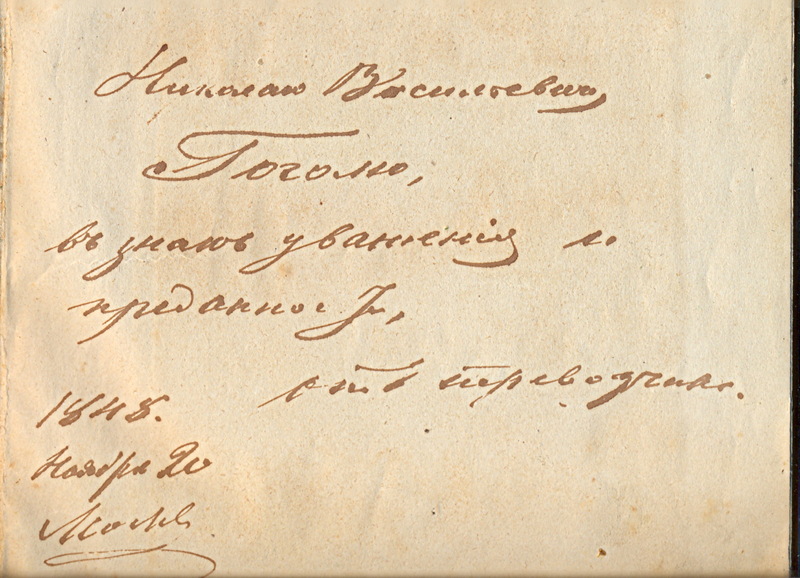 Николаю Васильевичу
Гоголю,
въ знакъ уваженія и
преданности,
отъ переводчика.
1848.
Ноября 20
Москва